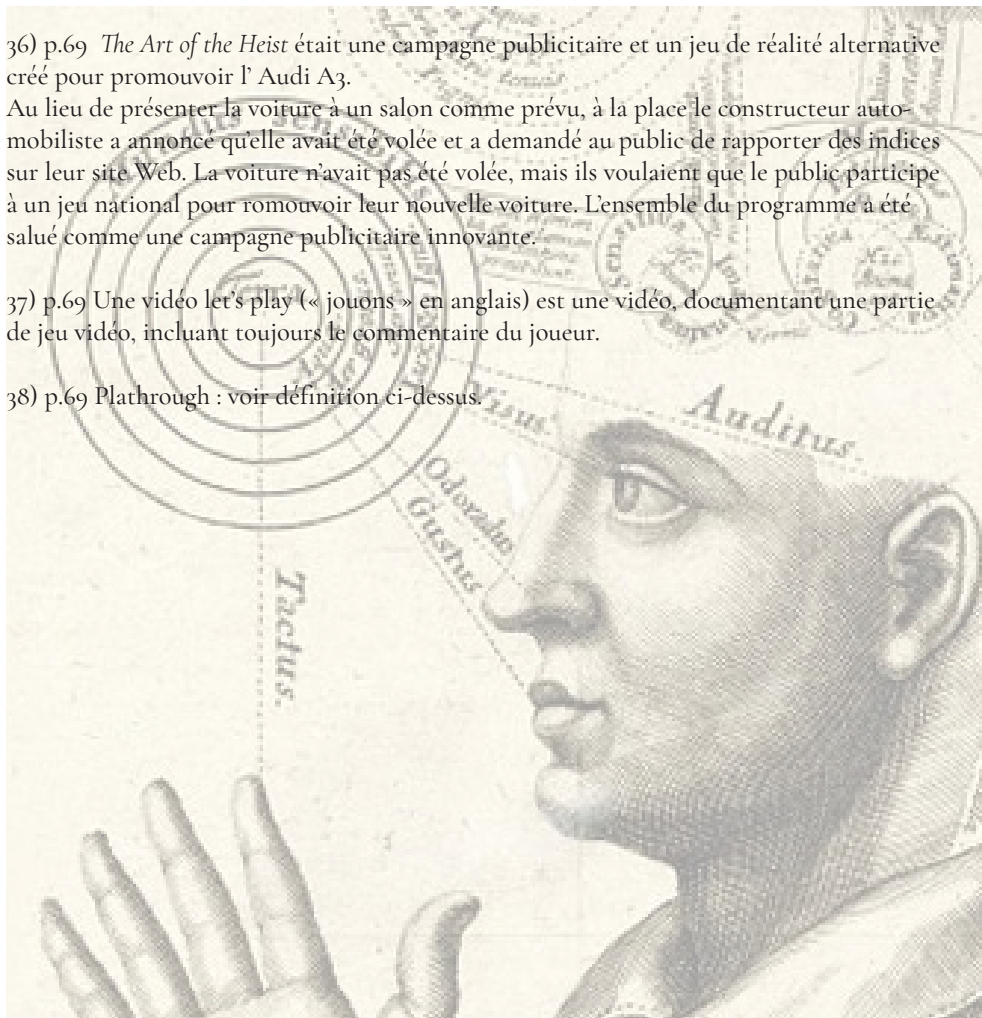 36) p.69 The Art of the Heist était une campagne publicitaire et un jeu de réalité alternative
créé pour promouvoir l' Audi A3.
Au lieu de présenter la voiture à un salon comme prévu, à la place le constructeur auto-
mobiliste a annoncé qu'elle avait été volée et a demandé au public de rapporter des indices
sur leur site Web. La voiture n'avait pas été volée, mais ils voulaient que le public participe
à un jeu national pour romouvoir leur nouvelle voiture. L'ensemble du programme a été
salué comme une campagne publicitaire innovante.
37) p.69 Une vidéo let's play (« jouons » en anglais) est une vidéo, documentant une partie
de jeu vidéo, incluant toujours le commentaire du joueur.
38) p.69 Plathrough : voir définition ci-dessus.
Visus.
Auditus.
Odoratus
Gustus
Tactus.